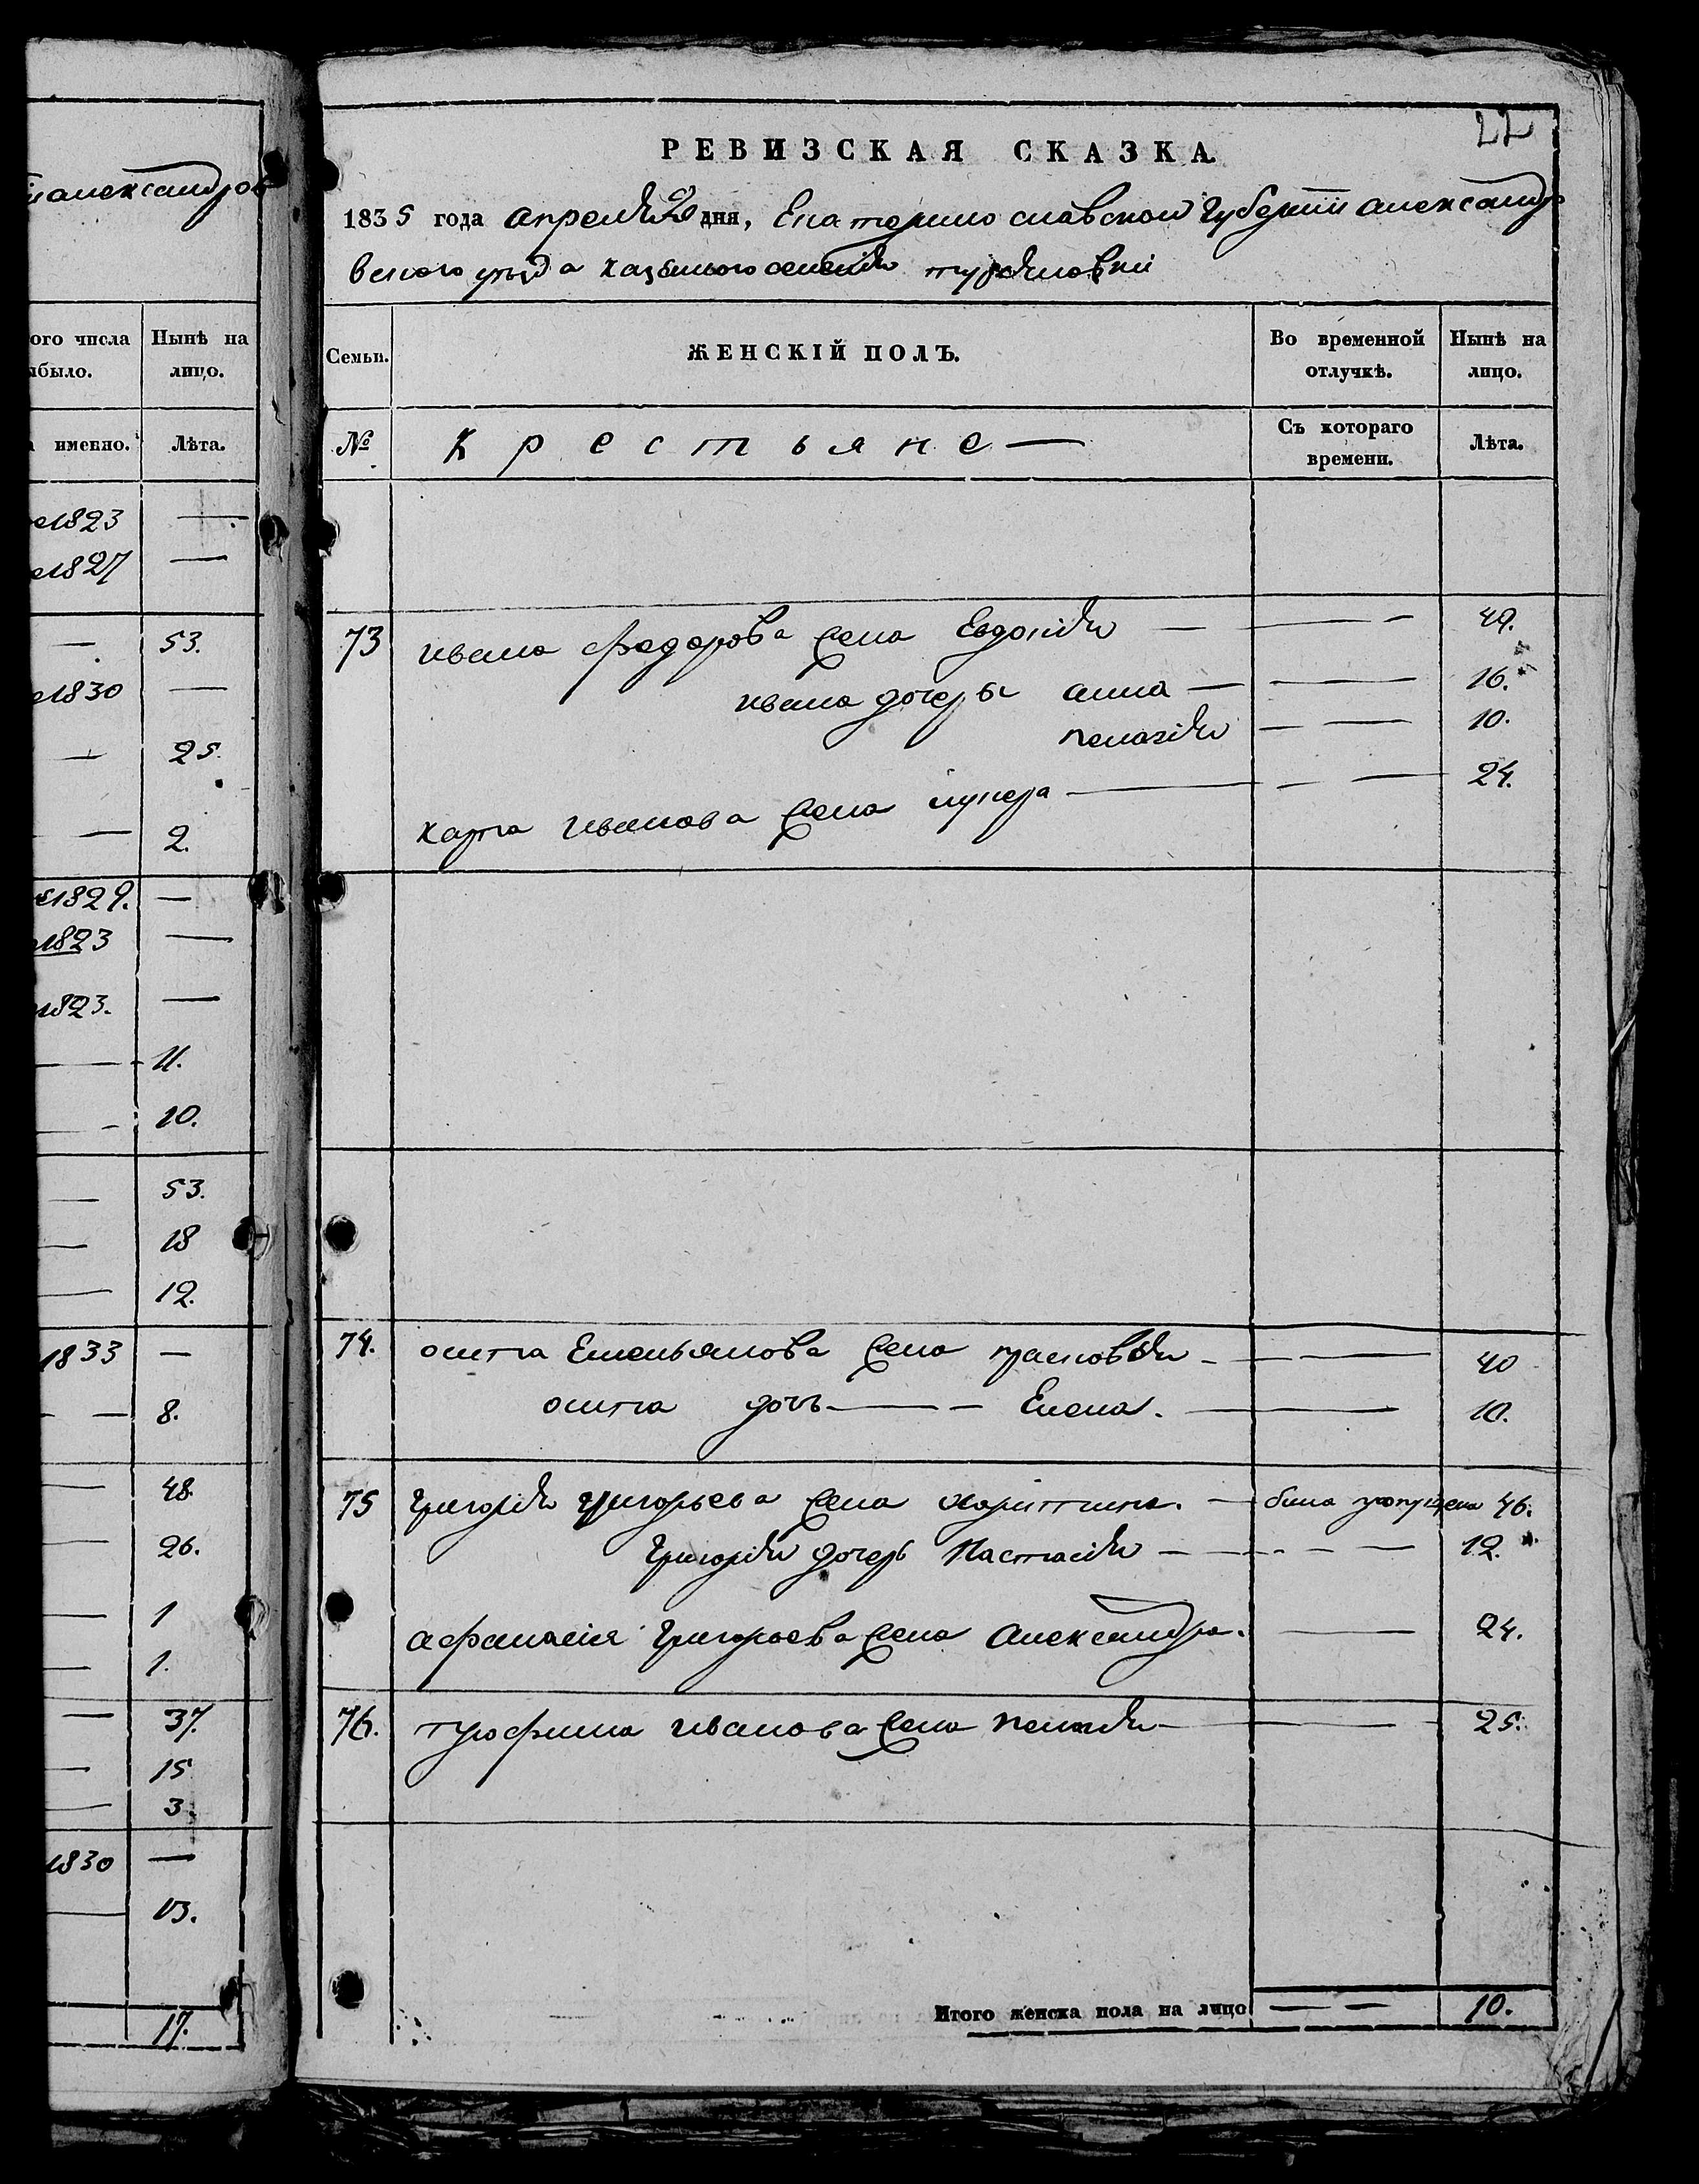 александров
ого числа
ыбыло.
Нынѣ на
лицо.
а именно.
Лѣта.
1823 —
1827 —
— 53.
1830 —
— 25.
— 2.
1829. —
1823 —
1823. —
— 11.
— 10.
— 53.
— 18
— 12.
1833 —
— 8.
— 48.
— 26.
— 1
— 1.
— 37.
— 15
— 3.
1830 —
— 13.
17.
22
РЕВИЗСКАЯ СКАЗКА.
1835 года апреля дня, Екатеринославской губернии александр
вского уезда казенного селенія
Семьи.
ЖЕНСКІЙ ПОЛЪ.
Во временной
отлучкѣ.
Нынѣ на
лицо.
№
Крестьяне —
Съ котораго
времени.
Лѣта.
73 ивана федорова жена Евдокія — — — 49.
ивана дочеры анна — — 16.
пелагія — — 10.
карпа иванова жена — — — 24.
74. осипа Емельянова жена прасковія — — — 40
осипа дочь — — Елена. — — 10.
75 григорія григорьева жена харитина. — била пропущена 46.
григорія дочеръ Настасія — — — — 12.
афанасія григорьева жена Александра. — 24.
76. трофима иванова жена пелагія — — — 25.
Итого женска пола на лицо — — 10.